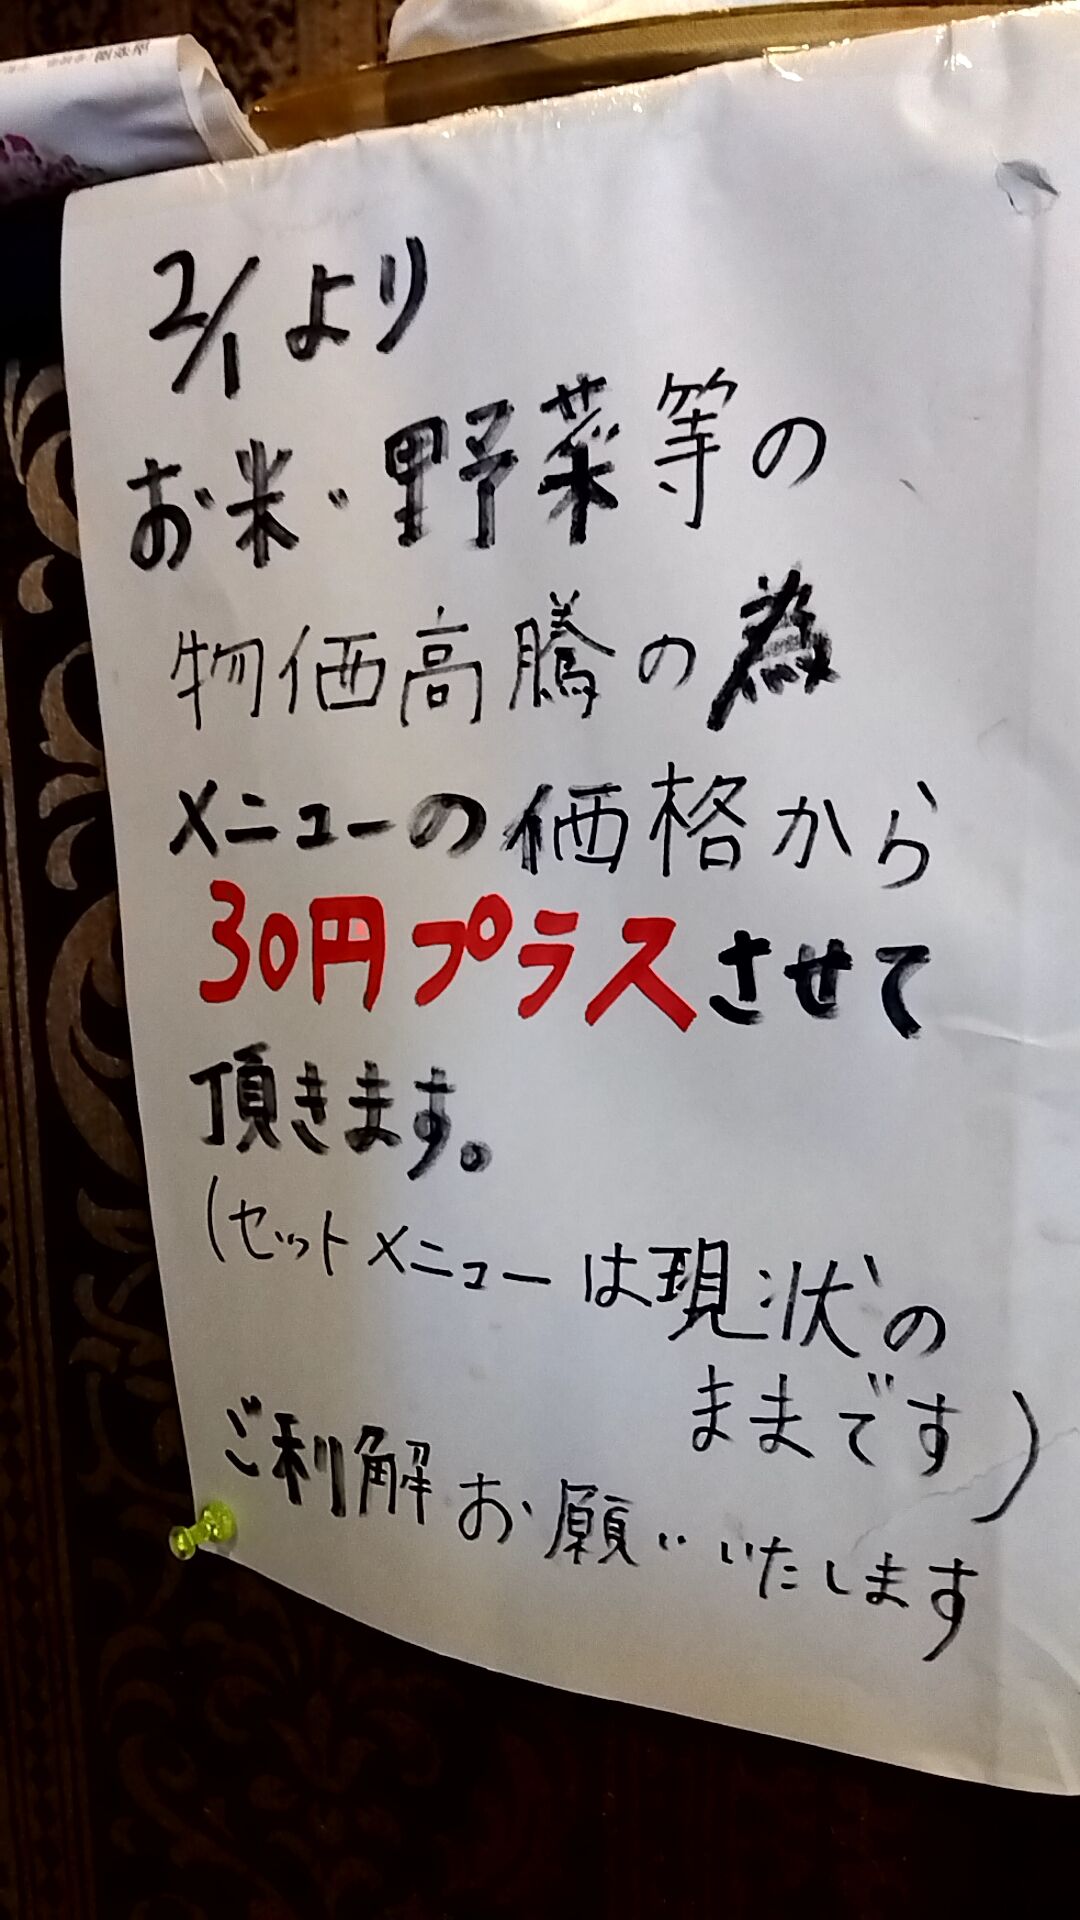 2/1より
お米・野菜等の
物価高騰の為
メニューの価格から
30円プラスさせて
頂きます。
(セットメニューは現状の
ままです)
ご利解お願いいたします